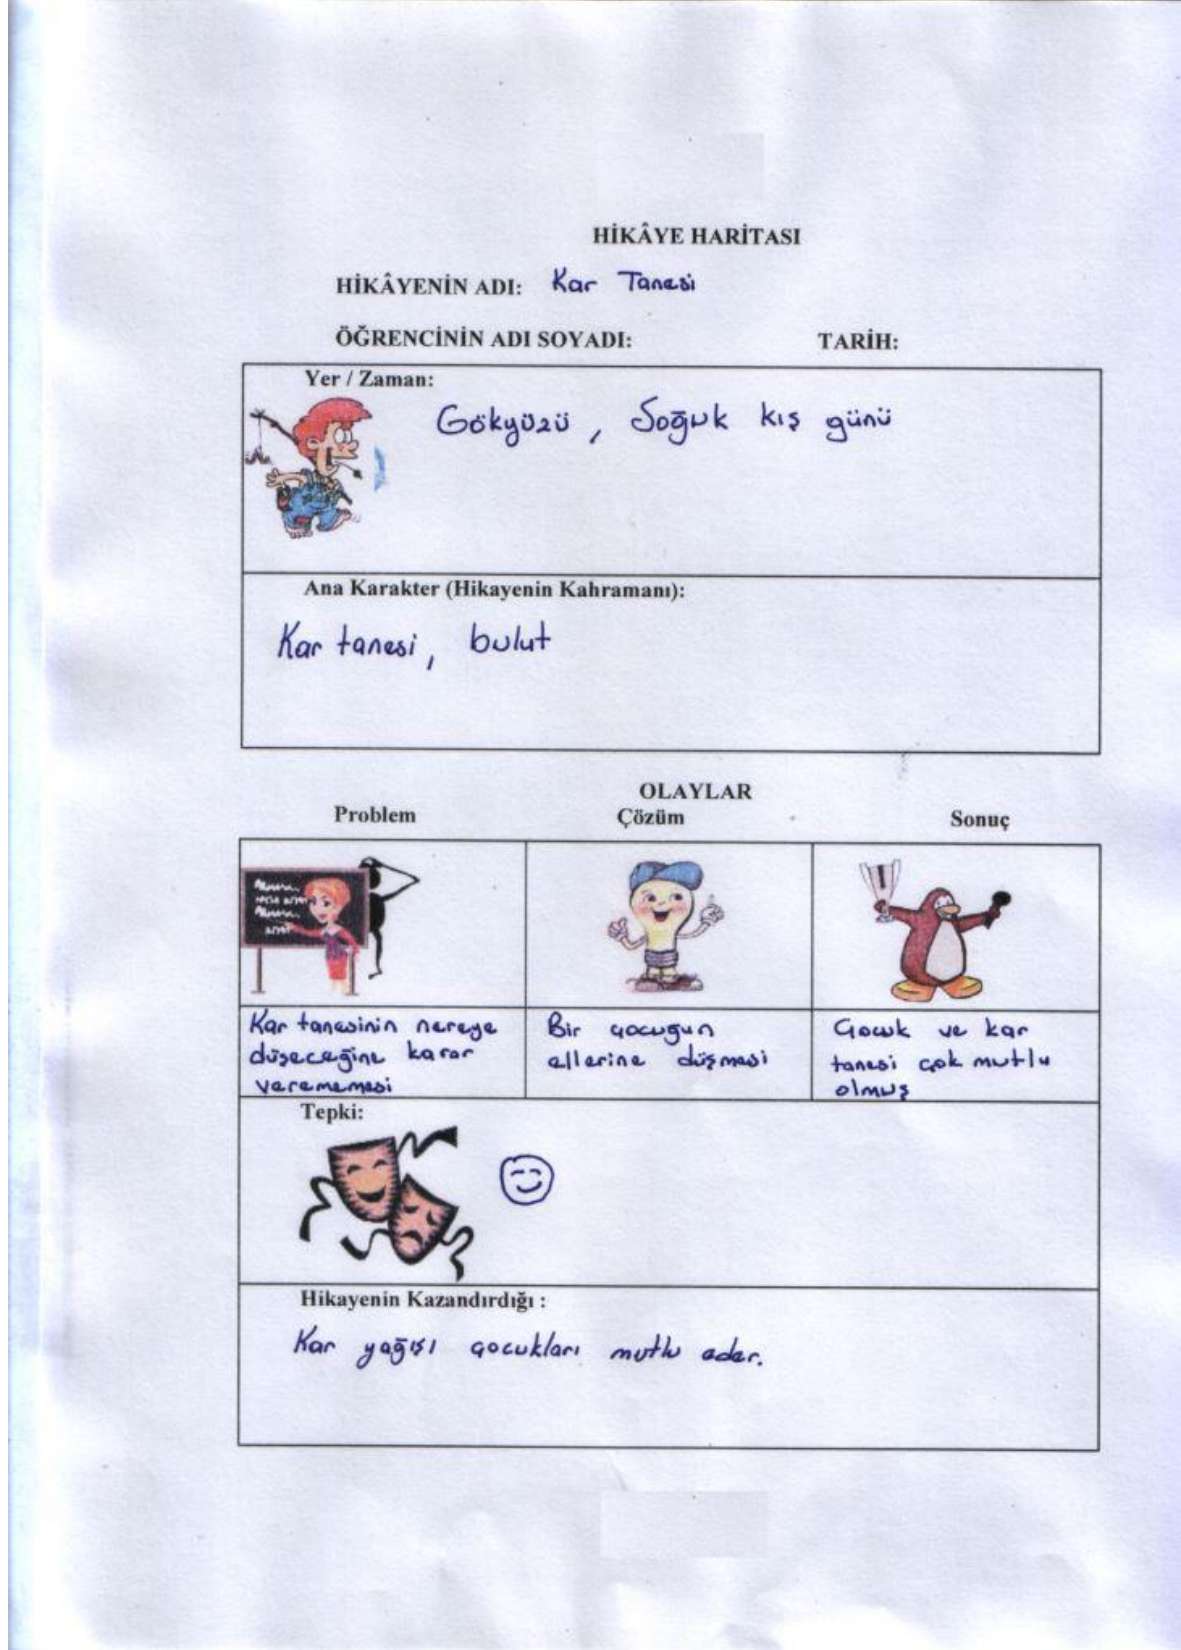 HİKÂYE HARİTASI
HİKÂYENİN ADI: Kar Tanesi
ÖĞRENCİNİN ADI SOYADI: TARİH:
Yer / Zaman:
Gökyüzü, Soğuk kış günü
Ana Karakter (Hikayenin Kahramanı):
Kar tanesi, bulut
OLAYLAR
Problem Çözüm Sonuç
Kar tanesinin nereye
düşeceğine karar
verememesi
Bir çocuğun
ellerine düşmesi
Çocuk ve kar
tanesi çok mutlu
olmuş
Tepki:
Hikayenin Kazandırdığı :
Kar yağışı çocukları mutlu eder.